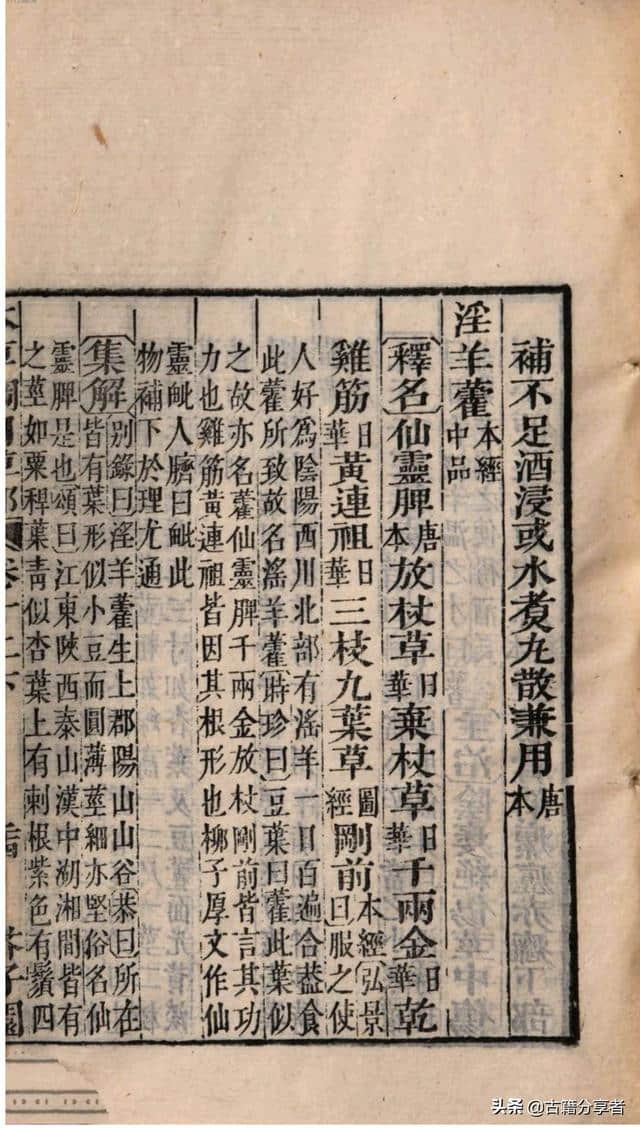 補不足酒浸或水煑丸散兼用唐本
淫羊藿本經中品
〔釋名〕仙靈脾唐本放杖草日華棄杖草日華千兩金日華乾
雞筋日華黃連祖日華三枝九葉草圖經剛前本經〔弘景曰〕服之使
人好爲陰陽西川北部有淫羊一日百遍合葢食
此藿所致故名淫羊藿〔時珍曰〕豆葉曰藿此葉似
之故亦名藿仙靈脾千兩金放杖剛前皆言其功
力也雞筋黃連祖皆因其根形也柳子厚文作仙
靈毗人臍曰毗此
物補下於理尤通
〔集解〕別錄曰淫羊藿生上郡陽山山谷〔恭曰〕所在
皆有葉形似小豆而圓薄莖細亦堅俗名仙
靈脾是也〔頌曰〕江東陝西泰山漢中湖湘間皆有
之莖如粟稈葉靑似杏葉上有刺根紫色有鬚四
本草綱目草部 卷十二下 芥子園
头条 @古籍分享者